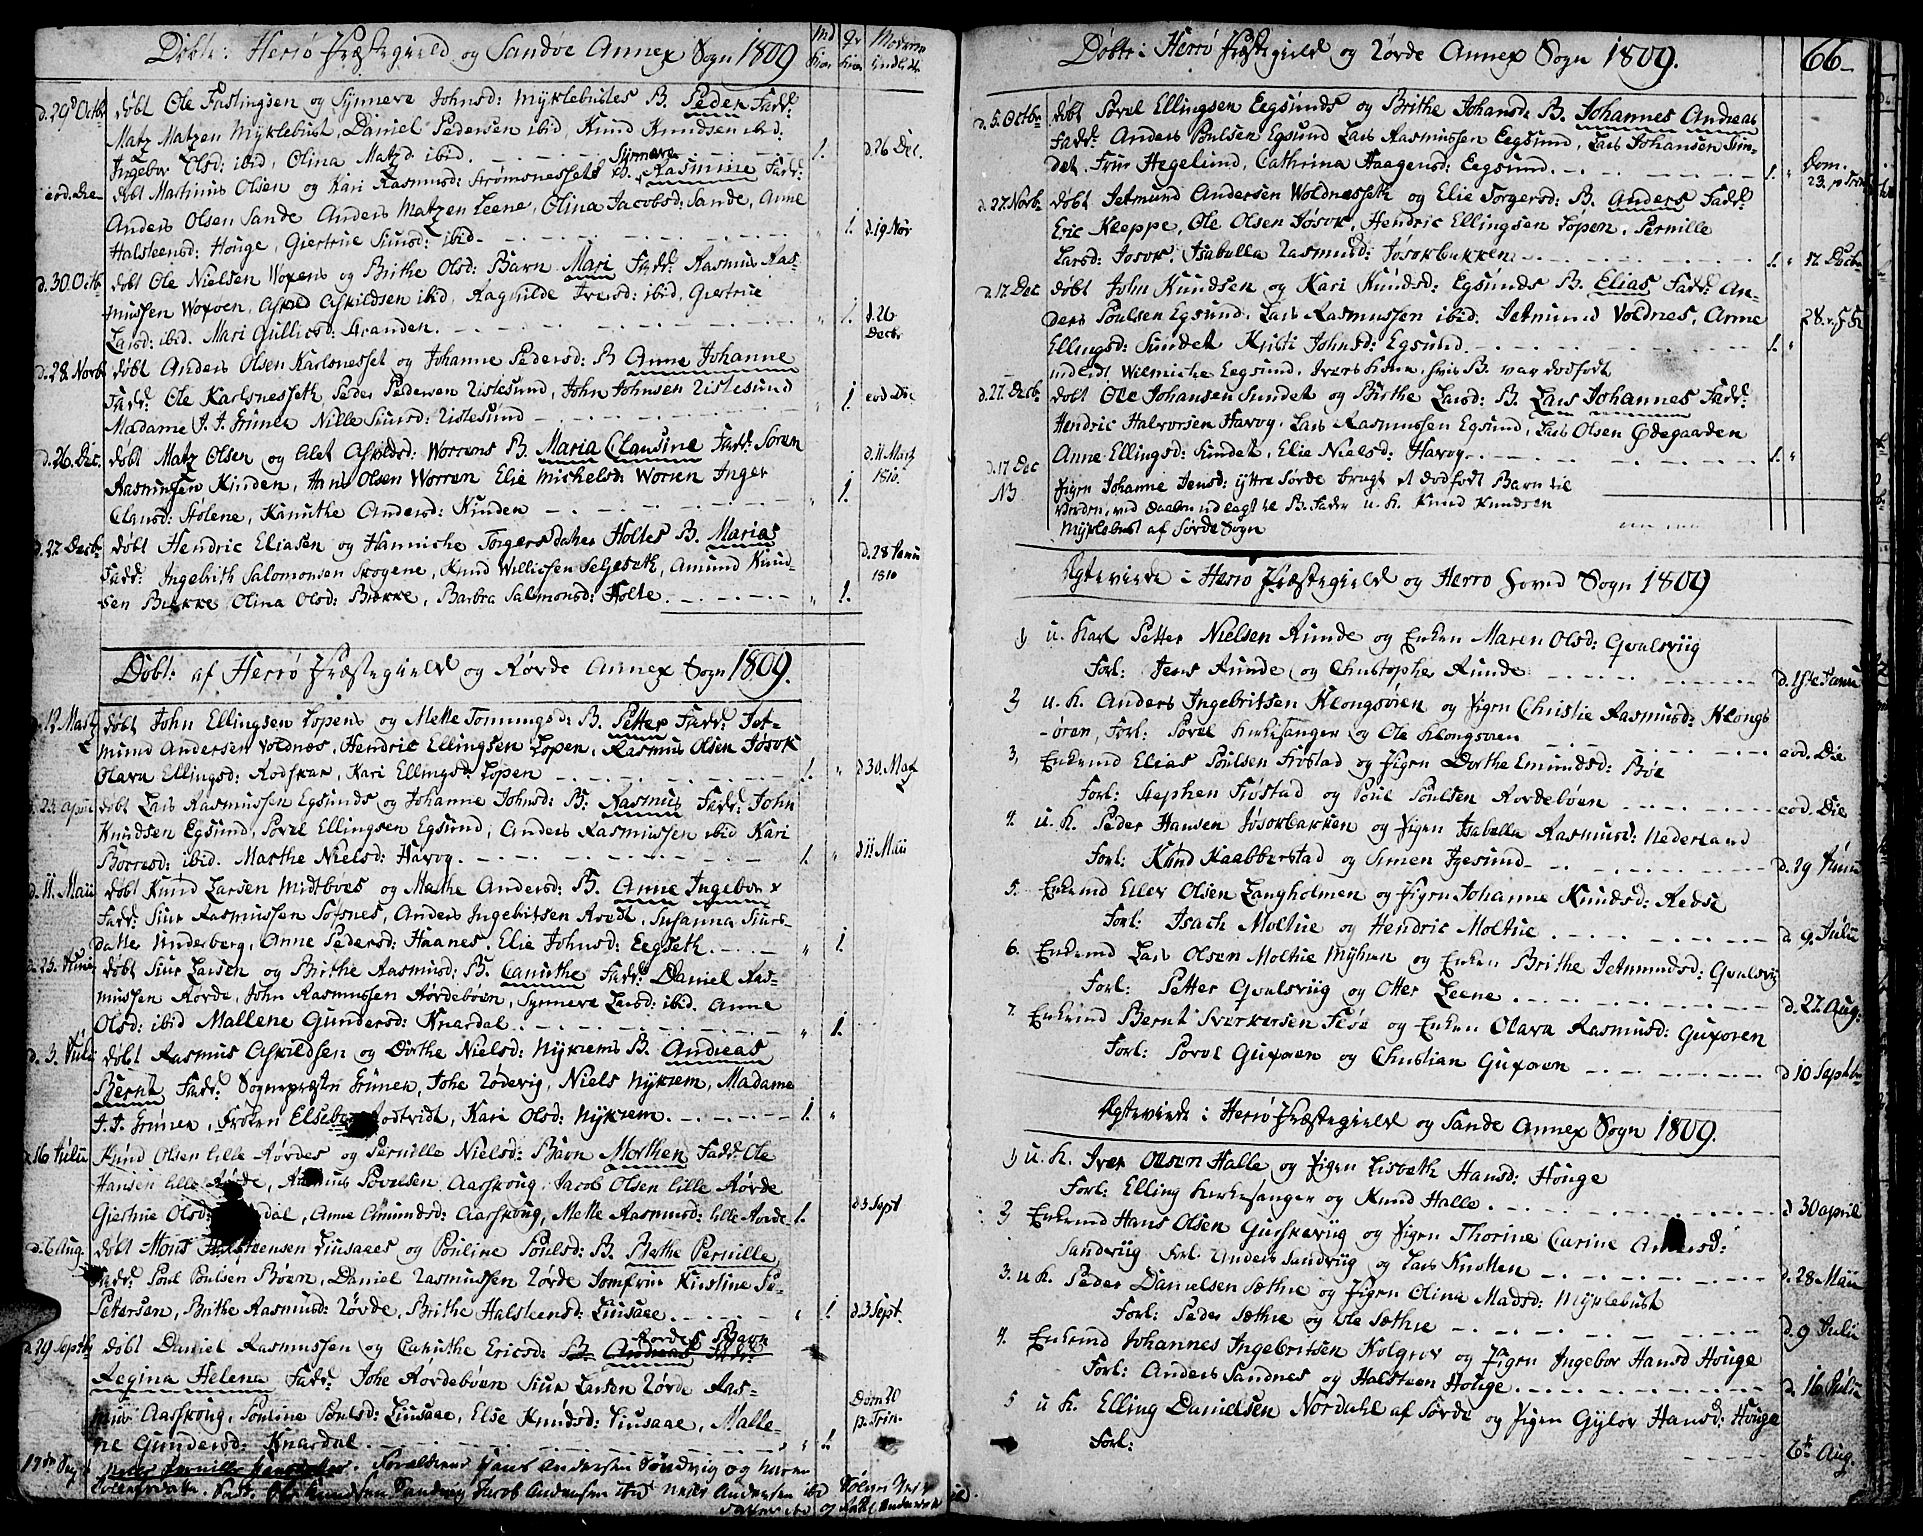 Døbte: Herrø Præstegield og Sandøe Annex Sogn 1809
d. 29d Octbr døbt Ole Fastingsen og Synneve Johnsd: Myklebustes B. Peder Fadd:
Matz Matzen Myklebust, Daniel Pedersen ibid, Knud Knudsen ibid.
Ingebor Olsd: ibid, Olina Matzd. ibid. 1. d. 26 Dec.
eod. Die døbt Martinus Olsen og Kari Rasmusd: Strømsnessets B. Synneva Rasmine Fadd:
Anders Olsen Sande Anders Matzen Leene, Olina Jacobsd: Sande, Anne
Halsteensd: Houge, Giertrue Siursd: ibid. 1. d. 19 Nov
d. 30 Octb døbt Ole Nielsen Woxens og Brithe Olsd: Barn Mari Fadd: Rasmus Ras-
mussen Woxøen, Askild Askildsen ibid, Ragnilde Iversd: ibid, Giertrue
Larsd: ibid. Mari Gullicsd: Stranden. 1. d. 26 Decbr
d. 28 Novb døbt Anders Olsen Karlsnesset og Johanne Pedersd: B Anne Johanne
Fadd: Ole Karlsnesseth Peder Pedersen Ristesund, John Johnsen Ristesund
Madame J. J. Grüner Nille Siursd: Ristesund 1. eod Die
d. 26. Dec. døbt Matz Olsen og Alet Askildsd: Worrens B. Maria Clausine Fadd: Soren
Rasmussen Kinden, Hans Olsen Worren Elie Michelsd: Worren Inger
Clausd: Holene, Kanuthe Andersd: Kinden 1. d. 11 Martz 1810.
d. 27. Decbr døbt Hendric Eliasen og Hanniche Torgersdatter Holtes B. Marias
Fadd: Ingebrith Salomonsen Skogene, Knud Willissen Selgeseth, Amund Knud-
sen Biekke Olina Olsd: Biekke, Barbra Salmonsd: Holte. 1. d. 28 Janu 1810
Døbt: af Herrø Præstegield og Rørde Annex Sogn 1809.
d. 12 Martz døbt John Ellingsen Lopens og Mette Tommingsd: B. Petter Fadd: Jet-
mund Andersen Voldnes, Hendric Ellingsen Lopen, Rasmus Olsen Jøsok
Olava Ellingsd: Rodskar, Kari Ellingsd: Lopen 1. d 30. Maj
d. 23. april døbt Lars Rasmussen Egsunds og Johanne Johnsd: B. Rasmus Fadd: John
Knudsen Egsund, Povel Ellingsen Egsund, Anders Rasmussen ibid Kari
Børresd: ibid. Marthe Nielsd: Havog. 1. d 11 Maii
d. 11. Maii døbt Knud Larsen Midtboes og Mathe Andersd: B. Anne Ingebor
Fadd: Siur Rasmussen Sofnes, Anders Ingebritsen Aredt, Susanna Siurs-
datter Underberg, Anne Pedersd: Haanes, Elie Johnsd: Eegseth. 1.
d. 25. Junii døbt Siur Larsen og Brithe Rasmusd: B. Canuthe Fadd: Daniel Ras-
mussen Rørde, John Rasmussen Rørdebøen, Synneve Larsd: ibid. Anne
Olsd: ibid Mallene Gundersd: Knardal. 1.
d. 3. Julii døbt Rasmus Askildsen og Dorthe Nielsd: Nykrems B. Andreas
Bernt Fadd: Sognepræsten Grüner, Johe Rødevig, Niels Nykrem, Madame
J. J. Grüner, Frøken Kari Olsd: Nykrem. 1.
d 16 Julii Knud Olsen lille Rørdes og Pernille Nielsd: Barn Morthen Fadd: Ole
Hansen lille Rørde, Rasmus Povelsen Aarskoug, Jacob Olsen lille Rørde
Giertrue Olsd: Anne Amundsd: Aarskoug, Mette Rasmusd: lille Rørde. 1. d 3 Sept
d. 6 Aug. døbt Mons Halsteensen Liusaaes og Pouline Poulsd: B. Berthe Pernille,
Fadd: Poul Poulsen Bøen, Daniel Rasmussen Rørde Jomfrue Kirstine Pe-
Petersen, Brithe Rasmusd: Rørde, Brithe Halsteensd: Liusaae. 1. d. 3 Sept.
d. 29 Septb døbt Daniel Rasmussen og Canuthe Ericsd: Rordes Barn
Regina Helena Fadd: Johe Rørdebøen Siur Larsen Rørde Ras-
mus Aarskoug, Pouline Poulsd: Liusaae, Else Knudsd: Liusaae, Malle-
ne Gundersd: Knardal. 1. Dom 20 p. Trin.
Forældrene Hans Andersen Sandvig og
Fadd: Sandvig Jacob Andersen ibid Niels Andersen ibid
Døbte i Herrø Præstegield og Rørde Annex Sogn 1809. 66
d. 5. Octbr døbt Povel Ellingsen Eegsunds og Brithe Johansd: B. Johannes Andreas
Fadd: Anders Poulsen Egsund Lars Rasmussen Eegsund, Lars Johansen Sun-
det. Frue Hegelund, Cathrina Haagensd: Eegsund. 1. Dom. 23. p Trin
d. 27. Novb døbt Jetmund Andersen Woldnesseth og Elie Torgersd: B. Anders Fadd:
Eric Kleppe, Ole Olsen Jøsok, Hendric Ellingsen Lopen, Pernille
Larsd: Josok, Isabella Rasmusd: Jøsokbakken 1. 17 Decb
d. 17. Dec døbt John Knudsen og Kari Knudsd: Egsunds B. Elias Fadd: An-
ders Poulsen Egsund. Lars Rasmussen ibid. Jetmund Voldnes, Anne
Ellingsd: Sundet Kristi Johnsd: Egsund. 1.
indledt Wilmiche Eegsund, Ivers kone, hvis B. var dødfødt
d. 27. Decbr døbt Ole Johansen Sundet og Birthe Larsd: B. Lars Johannes Fadd:
Hendric Halvorsen Havog, Lars Rasmussen Egsund, Lars Olsen Ødegaarden
Anne Ellingsd: Sundet, Elie Nielsd: Havog. 1.
d. 17 Dec NB Pigen Johanne Jensd: yttre Rørde bragt et dødfødt Barn til
Verden, ved Daaben udlagt til B. Fader u. K. Knud Knudsen
Myklebust af Rørde Sogn
Ægteviede i Herrø Præstegield og Herro Hoved Sogn 1809
1) u. Karl Petter Nielsen Runde og Enken Maren Olsd: Qvalsviig
Forl: Jens Runde og Christopher Runde d. 1ste Janu
2 u. K. Anders Ingebritsen Klongsøien og Pigen Christie Rasmusd: Klongs
-øren, Forl: Povel Kirkesanger og Ole Klongsøen eod. Die
3, Enkemd Elias Poulsen Frøstad og Pigen Dorthe Emundsd: Bøe
Forl: Stephen Frøstad og Poul Poulsen Rordebøen eod. Die
4. u. K. Peder Hansen Jøsokbakken og Pigen Isabella Rasmusd: Nederland
Forl: Knud Kaabberstad og Simen Igesund d. 29 Junii
5. Enkemd Eller Olsen Langholmen og Pigen Johanne Knudsd: Redse
Forl: Isach Moltue og Hendric Moltue d 9. Julii
6. Enkemd Lars Olsen Moltue Myhren og Enken Brithe Jetmundsd: Qvalsvig
Forl: Petter Qvalsviig og Otter Leene d. 27. Aug:
7. Enkemd Bernt Sverkersen Fløe og Enken Olava Rasmusd: Guxøren
Forl: Povel Guxøren og Christian Guxøren d 10 Septbr
Ægteviede i Herrø Præstegield og Sande Annex Sogn 1809.
1) u. K. Iver Olsen Halle og Pigen Lisbeth Hansd: Houge
Forl: Elling Kirkesanger og Knud Halle. d 30 april
2 Enkemd Hans Olsen Gurskeviig og Pigen Thorine Carine
Sandviig Forl: Anders Sandviig og Lars Knotten d. 28 Maii
3. u K. Peder Danielsen Sæthre og Pigen Olina Madsd: Myklebust
Forl: Peder Sæthre og Ole Sæthre d. 9 Julii
4. Enkemd Johannes Ingebritsen Kolgrov og Pigen Ingebor Hansd Houge
Forl: Anders Sandnes og Halsteen Houge. d 16 Julii
5 u K. Elling Danielsen Nordahl af Rørde og Pigen Gyløv Hansd: Houge
Forl: 6t Aug.